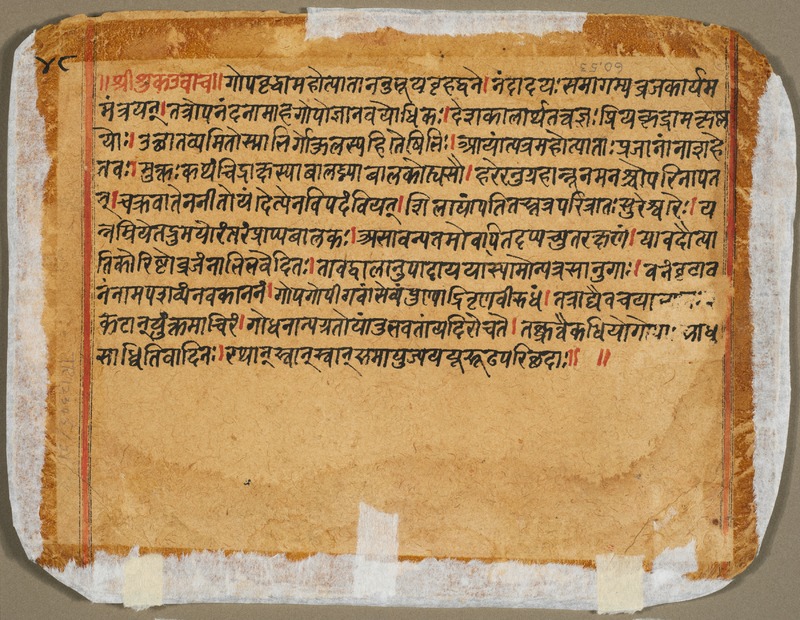 ४८
॥श्रीशुकउवाच॥गोपवृद्धामहोत्पाताननुभूयवृहद्वने।नंदादयःसमागम्यव्रजकार्यम
मंत्रयन्।तत्रोपनंदनामाहगोपोज्ञानवयोधिकः।देशकालार्थतत्वज्ञःप्रियकृद्रामकृष्ण
योः।उत्थातव्यमितोस्माभिर्गोकुलस्यहितैषिभिः।आयांत्यत्रमहोत्पाताःप्रजानांनाशहे
तवः।मुक्तःकथंचिद्राक्षस्याबालघ्न्याबालकोह्यसौ।हरेरनुग्रहान्नूनमनश्चोपरिनापत
त्।चक्रवातेननीतोयंदैत्येनविपदंवियत्।शिलायांपतितस्तत्रपरित्रातःसुरेश्वरैः।य
न्नम्रियेतद्रुमयोरंतरंप्राप्यबालकः।असावन्यतमोवापितदप्यच्युतरक्षणं।यावदौत्पा
तिकोरिष्टोव्रजंनाभिभवेदितः।तावद्बालानुपादाययास्यामोन्यत्रसानुगाः।वनंवृंदाव
नंनामपशव्यंनवकाननं।गोपगोपीगवांसेव्यंपुण्याद्रितृणवीरुधं।तत्राद्यैवचया
कटान्युंक्तमाचिरं।गोधनान्यग्रतोयांतुभवतांयदिरोचते।तच्छ्रुत्वैकधियोगोपाः साधु
साध्वितिवादिनः।रथान्स्वान्स्वान्समायुज्यययूरूढपरिच्छदाः॥ ॥
60.53